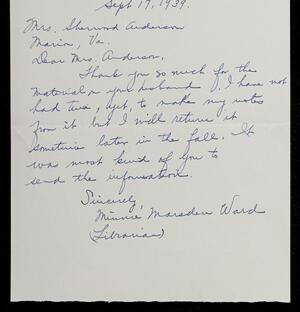 Sept 17, 1939.
Mrs. Sherwood Anderson
Marion, Va.
Dear Mrs. Anderson,
Thank you so much for the
material on your husband. I have not
had time, yet, to make my notes
from it but I will return it
sometime later in the fall. It
was most kind of you to
send the information.
Sincerely,
Minnie Marsden Ward
(Librarian)